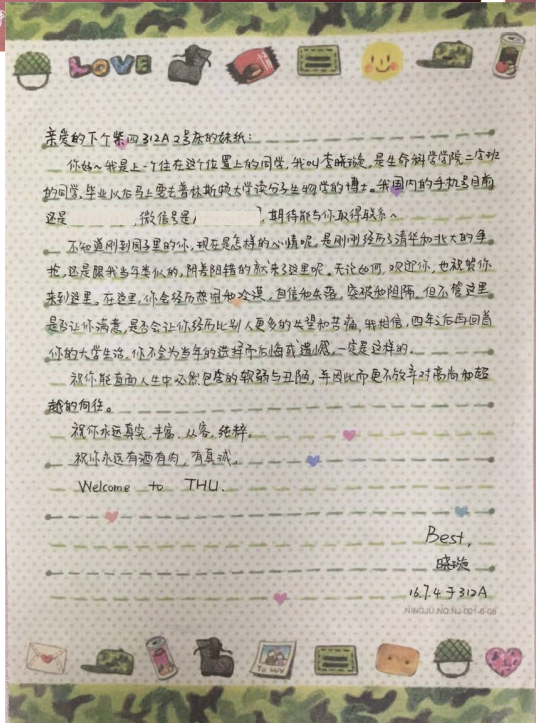 LOVE
亲爱的下个紫四312A 2号床的妹纸：
你好~我是上一个住在这个位置上的同学，我叫李晓璇，是生命科学学院二字班
的同学，毕业以后马上要去普林斯顿大学读分子生物学的博士。我国内的手机号目前
还是，微信号是，期待能与你取得联系~
不知道刚到园子里的你，现在是怎样的心情呢，是刚刚经历了清华和北大的争
抢，还是跟我当年类似的，阴差阳错的就来了这里呢。无论如何，欢迎你，也祝贺你
来到这里。在这里，你会经历热闹和冷漠，自信和失落，突破和阻碍。但不管这里
是否让你满意，是否会让你经历比别人更多的失望和苦痛，我相信，四年之后再回首
你的大学生活，你不会为当年的选择而后悔或遗憾，一定是这样的。
祝你能直面人生中必然包含的软弱与丑陋，并因此而更不放弃对高尚和超
越的向往。
祝你永远真实，丰富，从容，纯粹。
祝你永远有酒有肉，有真诚。
Welcome to THU.
Best,
晓璇
16.7.4 于312A
NINGJU.NO:NJ-001-6-08